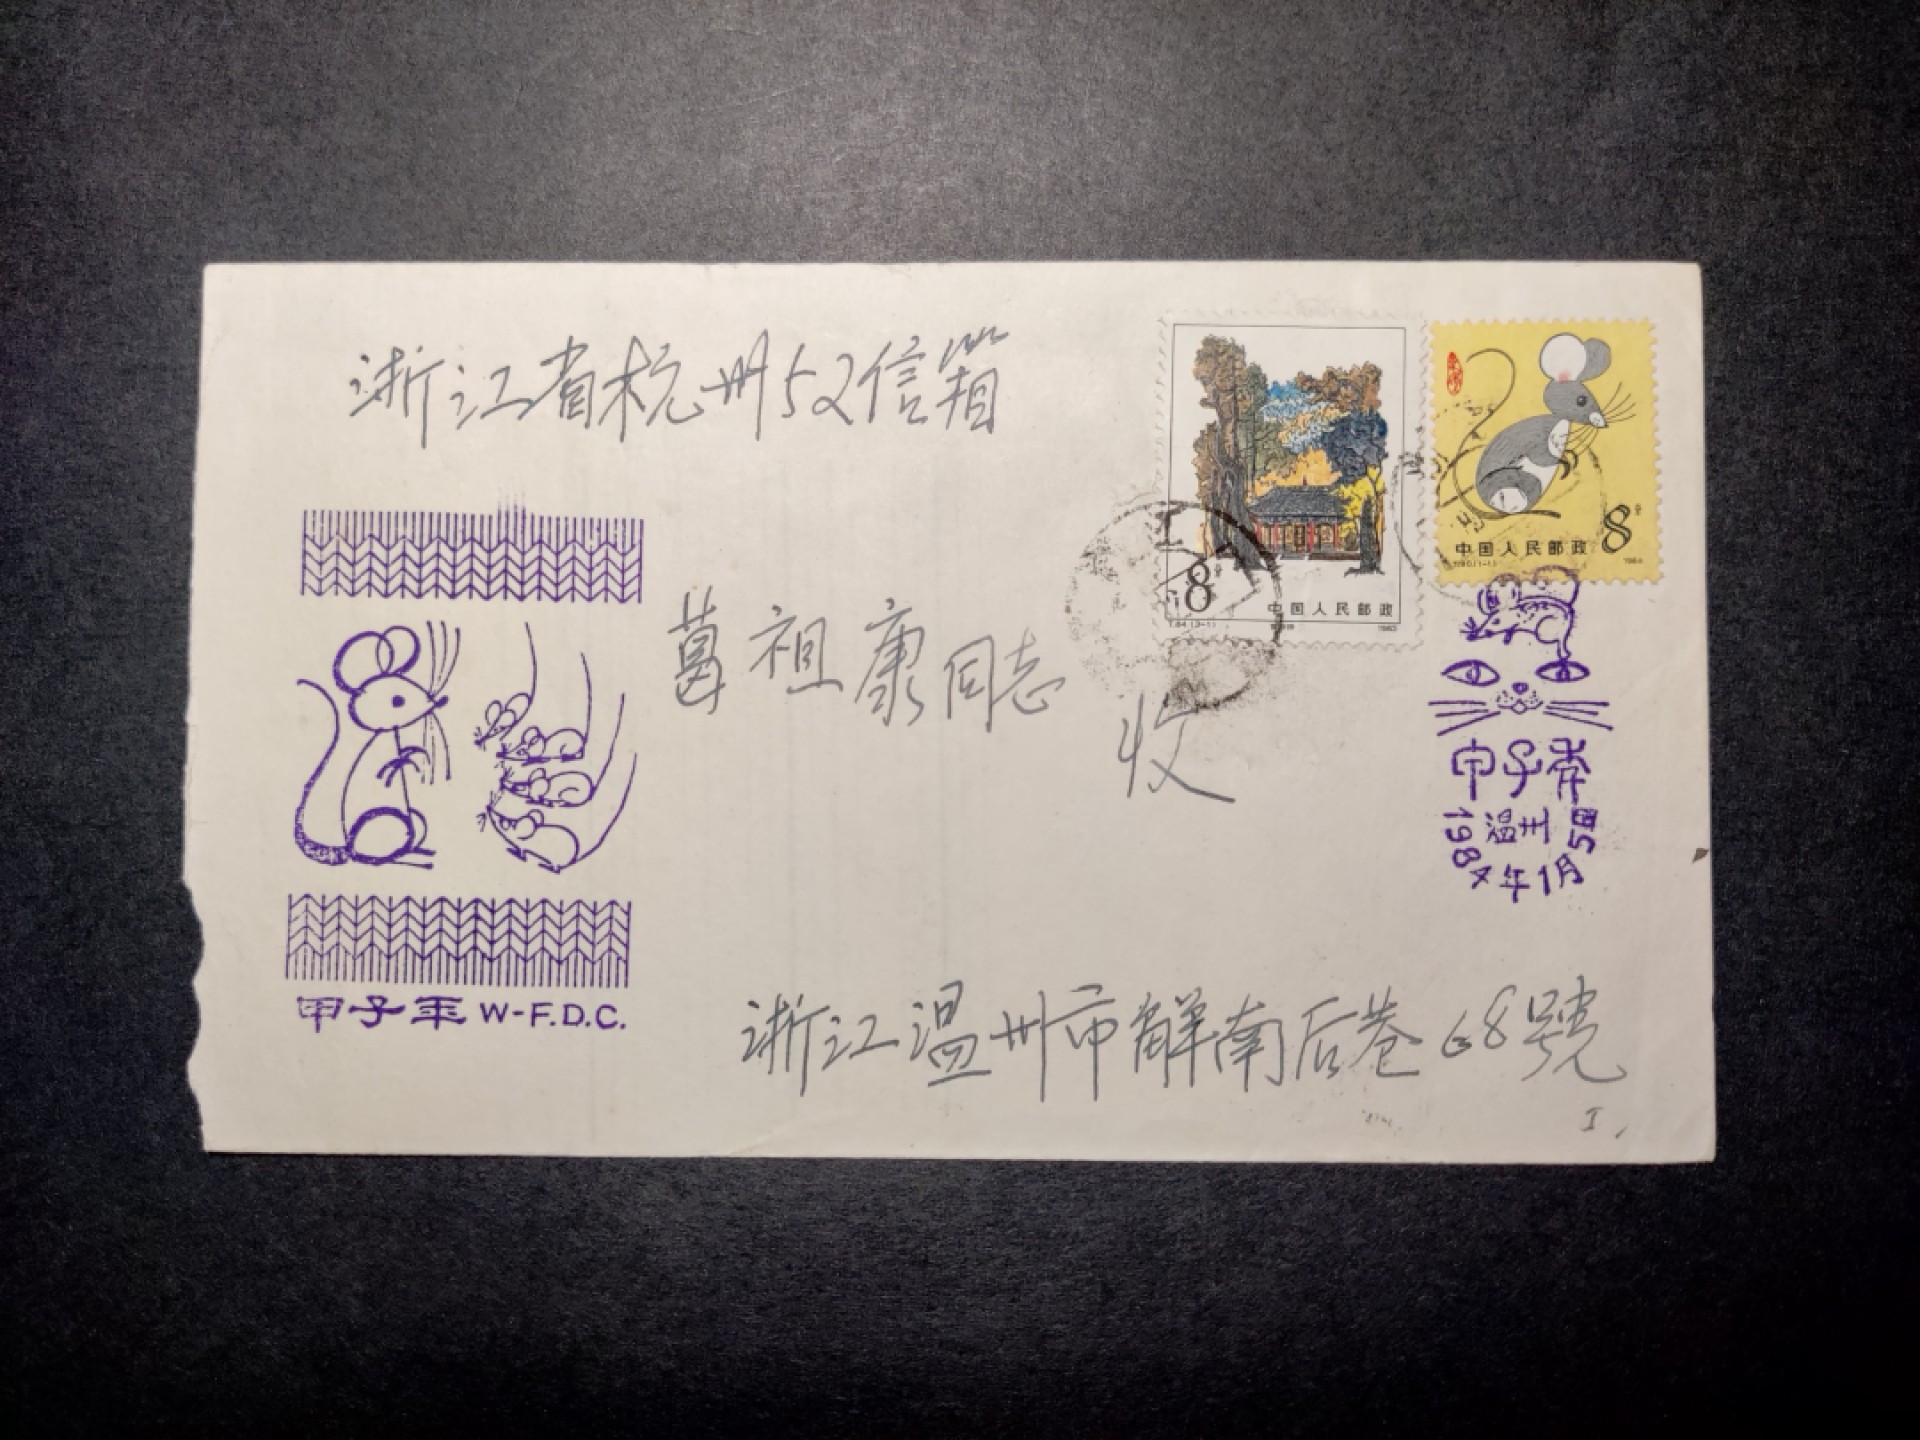 浙江省杭州52信箱
8分
中国人民邮政
T.84.(3-1)
1983
8分
中国人民邮政
T.90.(1-1)
1984
葛祖康同志
收
甲子年
温州
1984年1月5日
甲子年 W-F.D.C.
浙江温州市解南后巷68號
I,